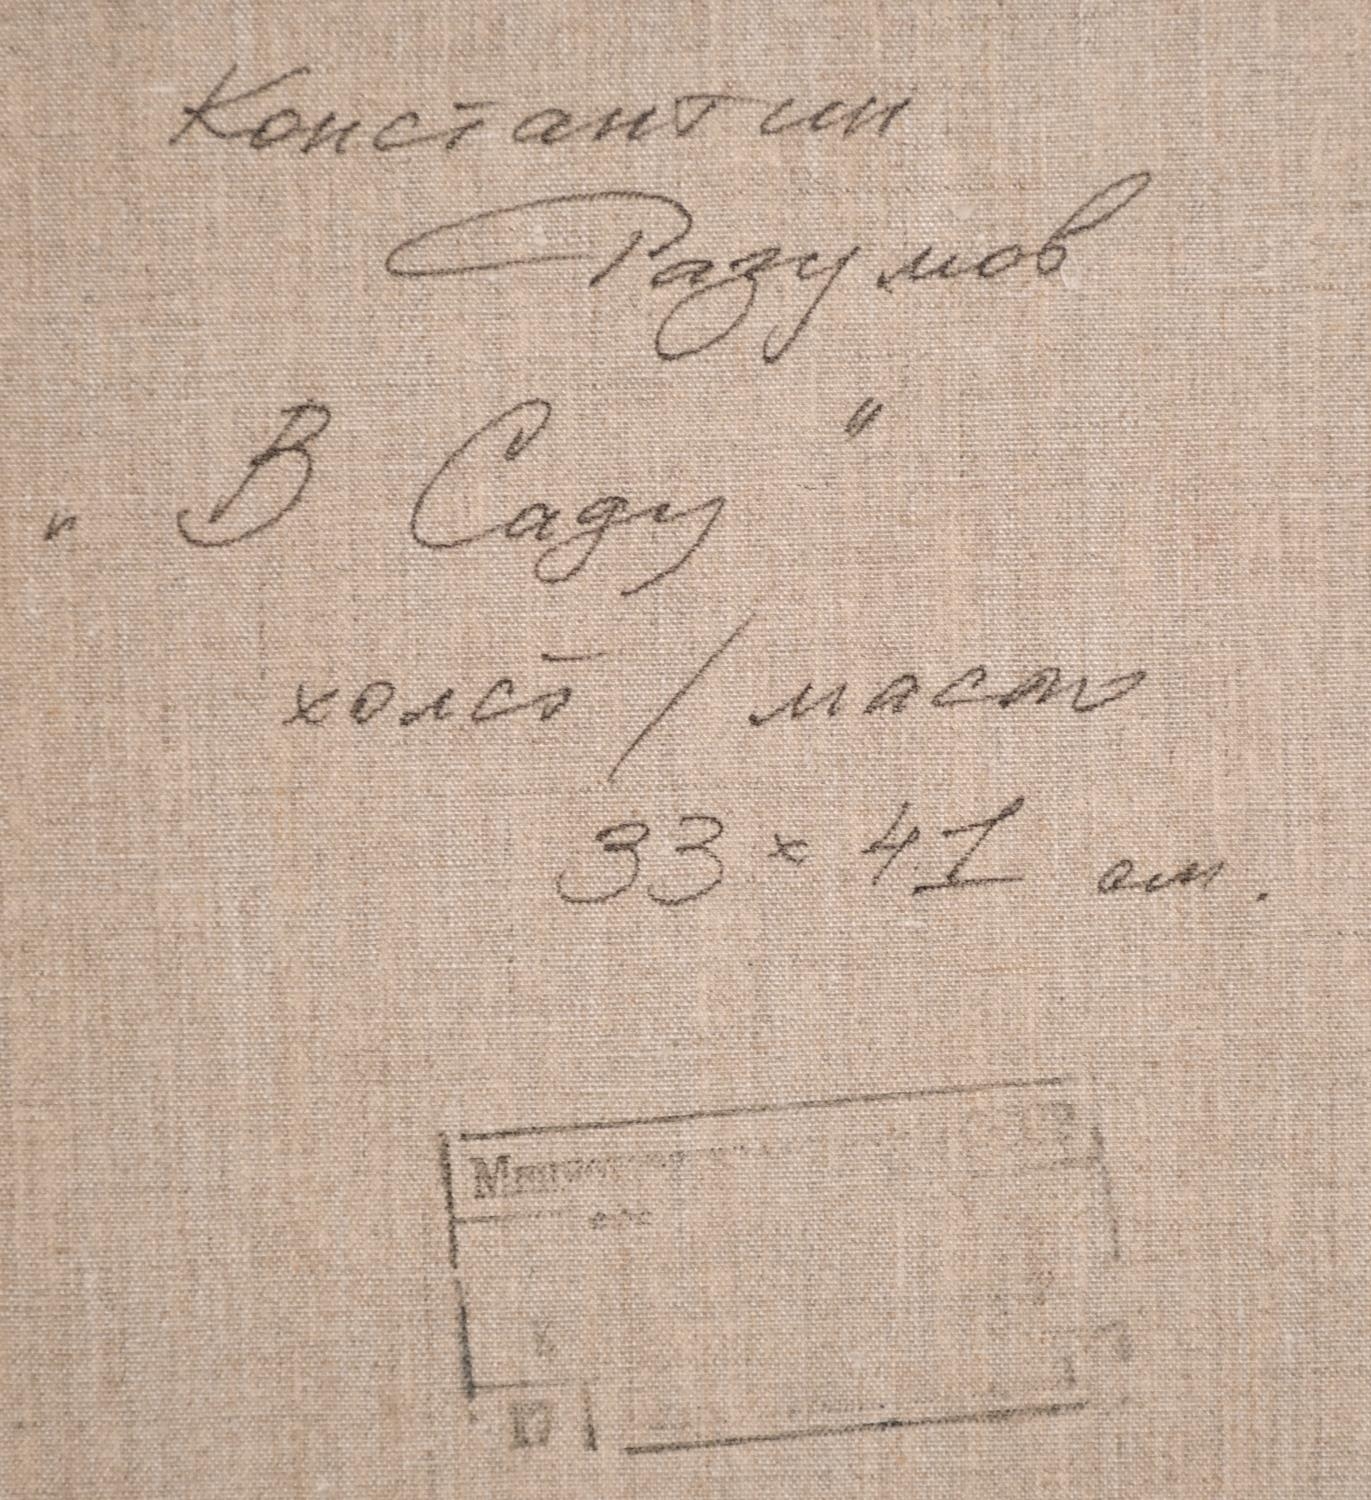 Константин
Разумов
„В Саду"
холст / масло
33 × 41 см.